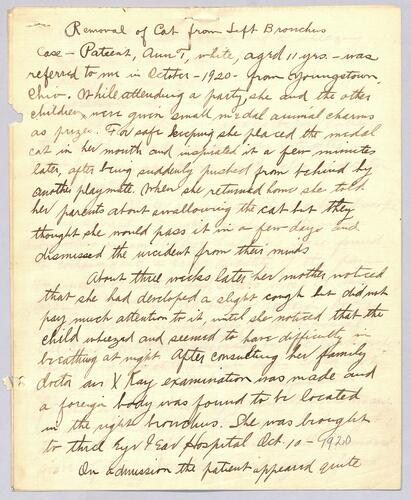 Removal of Cat from Left Bronchus
Case - Patient, Ann T, white, aged 11 yrs. - was
referred to me in October - 1920 - from Youngstown,
Ohio. While attending a party, she and the other
children, were given small medal animal charms
as prizes. For safe keeping she placed the medal
cat in her mouth and inspirated it a few minutes
later, after being suddenly pushed from behind by
another playmate. When she returned home she told
her parents about swallowing the cat but they
thought she would pass it in a few days and
dismissed the incident from their minds
About three weeks later her mother noticed
that she had developed a slight cough but did not
pay much attention to it, until she noticed that the
child wheezed and seemed to have difficulty in
breathing at night. After consulting her family
doctor an X Ray examination was made and
a foreign body was found to be located
in the right bronchus. She was brought
to the Eye & Ear Hospital Oct. 10 - 1920
On admission the patient appeared quite